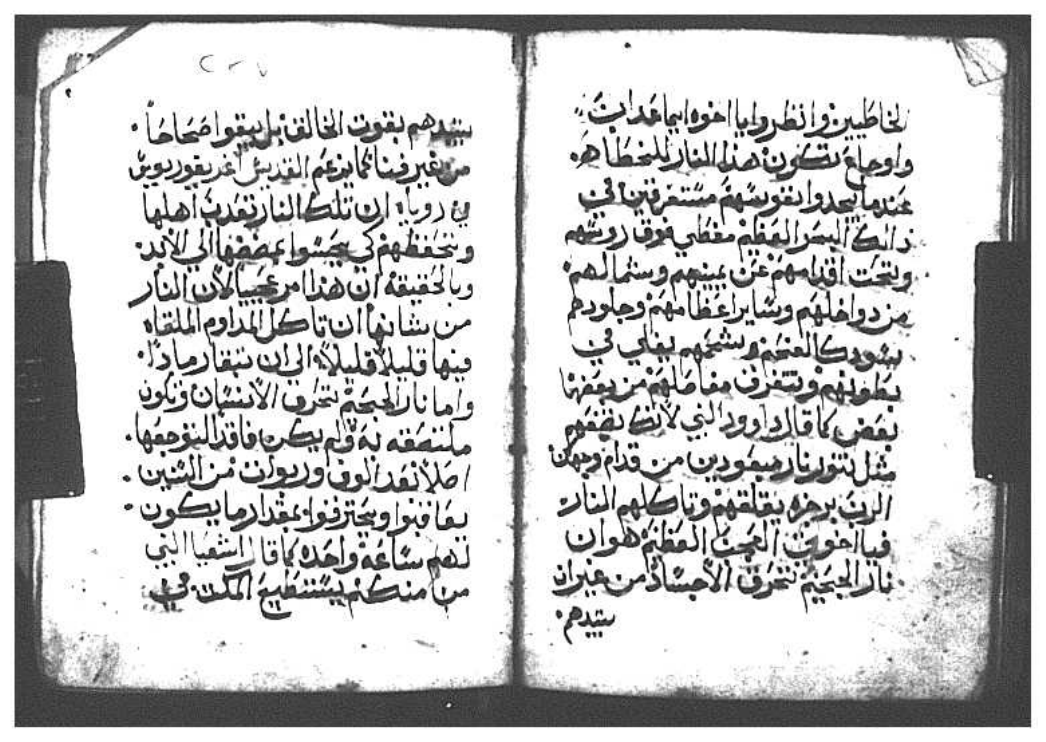 الخاطيين وانظروا يا اخوه ايما عداب
واوجاع تكون هذا النار للخطاه
عندما يجدوا نفوسهم مستغرقين في
ذالك البحر العظم مغطي فوق روسهم
وتحت اقدامهم عن يمينهم وشمالهم
من دواخلهم وساير اعظامهم وجلودهم
بسود كالفحم وشحمهم يغلي في
بطونهم وتتفرق مفاصلهم من بعضها
بعض كما قال داوود النبي لانك تضعهم
مثل تنور نار ميعودين من قدام وجهك
الرب برجزه يقلقهم وتاكلهم النار
فيا اخوتي العجب العظم هو ان
نار الجحيم تحرق الاجساد من غير ان
يبيدهم
٢٣٧
يبيدهم بقوت الخالق بل يبقوا صحاحا
من غير فنا كما يزعم القديس اغريغوريوس
في رويا ان تلك النار تعدب اهلها
وتحفظهم كي يحسوا بمضضها الي الابد
وبالحقيقه ان هذا مر عجيب لان النار
من شانها ان تاكل المداوم الملقاه
فيها قليلا قليلا الي ان تبقا رمادا
واما نار الجحيم تحرق الانسان وتكون
ملتصقه به ولم يكن فاقد التوجعها
اصلا بعد الوف وربوات من السنين
يعاقبوا ويحترقوا بمقدار ما يكون
لهم ساعه واحده كما قال اشعيا النبي
من منكم يستطيع المكت في